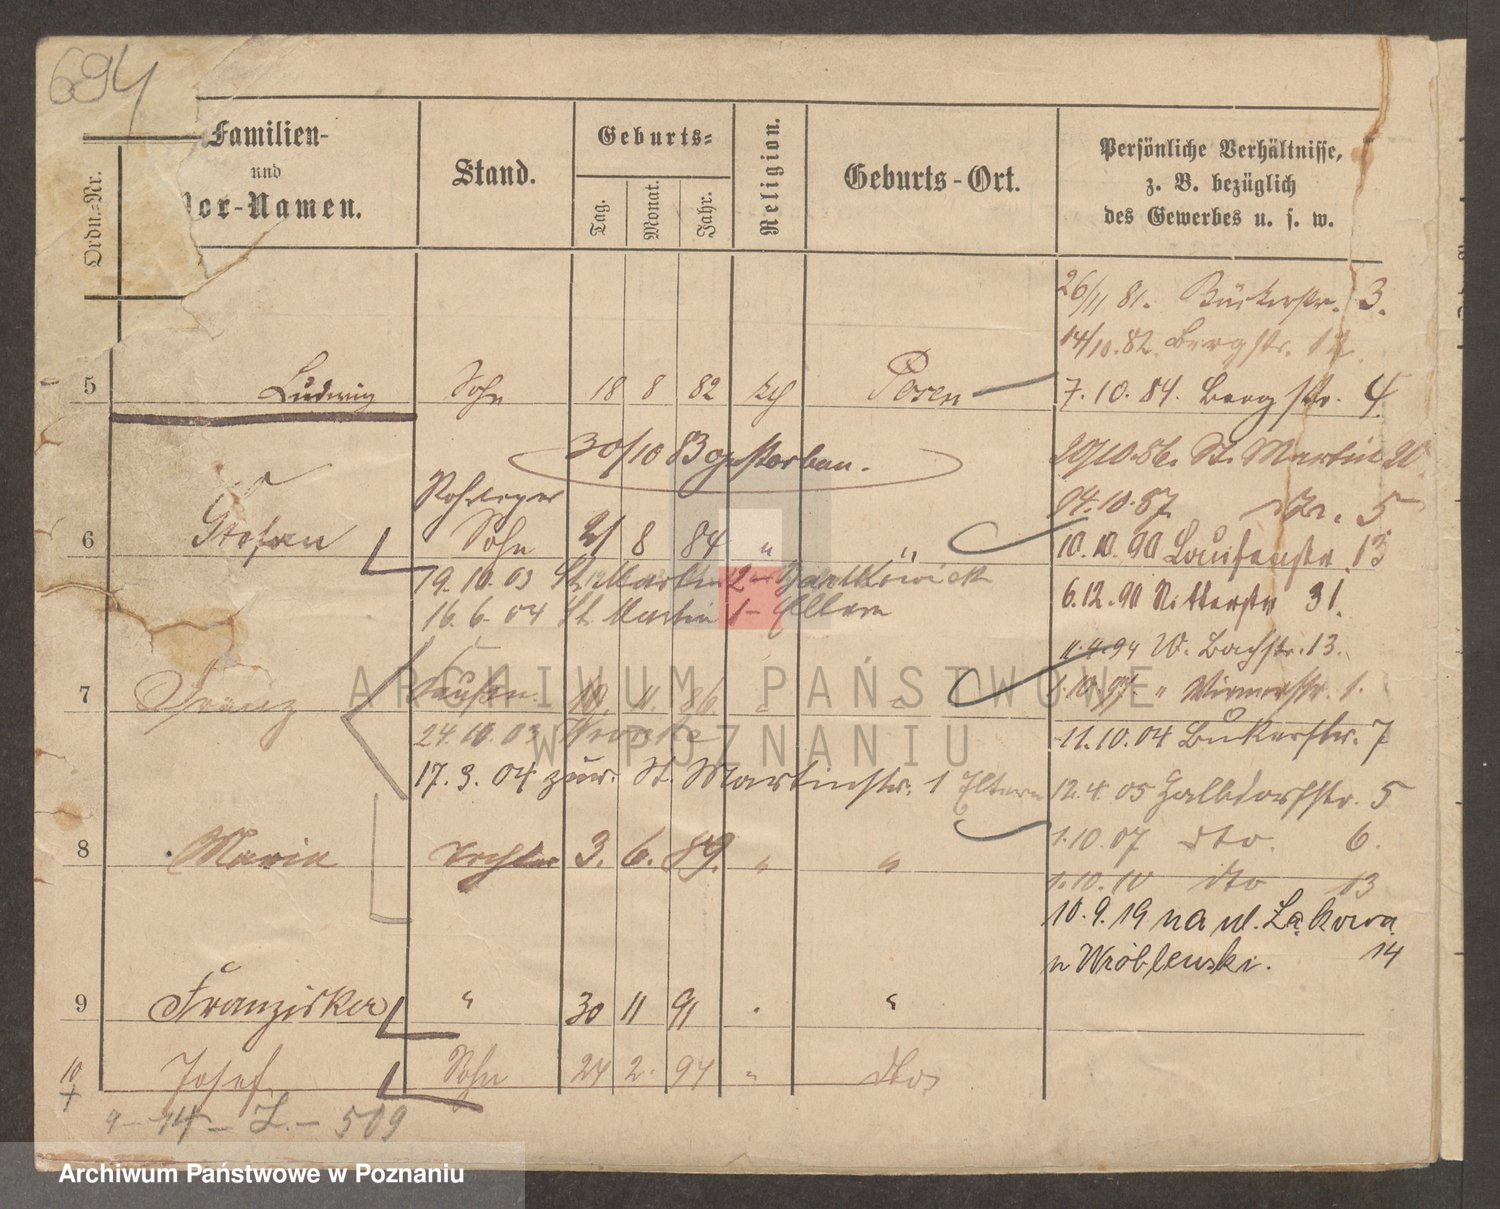 694
Ordn.-Nr.
Familien-
und
Vor-Namen.
Stand.
Geburts-
Tag.
Monat.
Jahr.
Religion.
Geburts-Ort.
Persönliche Verhältnisse,
z. B. bezüglich
des Gewerbes u. s. w.
26/11 81. Bückerstr. 3.
14/10.82. Bergstr. 12.
5 Ludwig Sohn 18 8 82 kth Posen
7.10.84. Bergstr. 4
30/10 83 gestorben.
20/10.86. St. Martin 20
04.10.87. 5
6 Stefan Sohn 21 8 84 " "
10.10.90 13
19.10.03 St. Martin 2
6.12.90 Ritterstr 31.
16.6.04 St Martin 1 – Eltern
11.4.94 W. Bachstr. 13.
7 Franz 10. 11. 86. " "
1.10.97. " 1.
24.10.03
11.10.04 Bukerstr. 7
17.3.04 zur. St. Martinstr. 1 Eltern
12.4.05 5
8 Maria Tochter 3. 6. 89. " "
1.10.07 dto. 6.
1.10.10 dto 13
10.9.19 na ul. Łąkowa
14
u Wróblewski.
9 Franziska " 30 11 91 "
10 Josef Sohn 24 2. 94 " dto
+
9-14-L.-509
ARCHIWUM PAŃSTWOWE
W POZNANIU
Archiwum Państwowe w Poznaniu